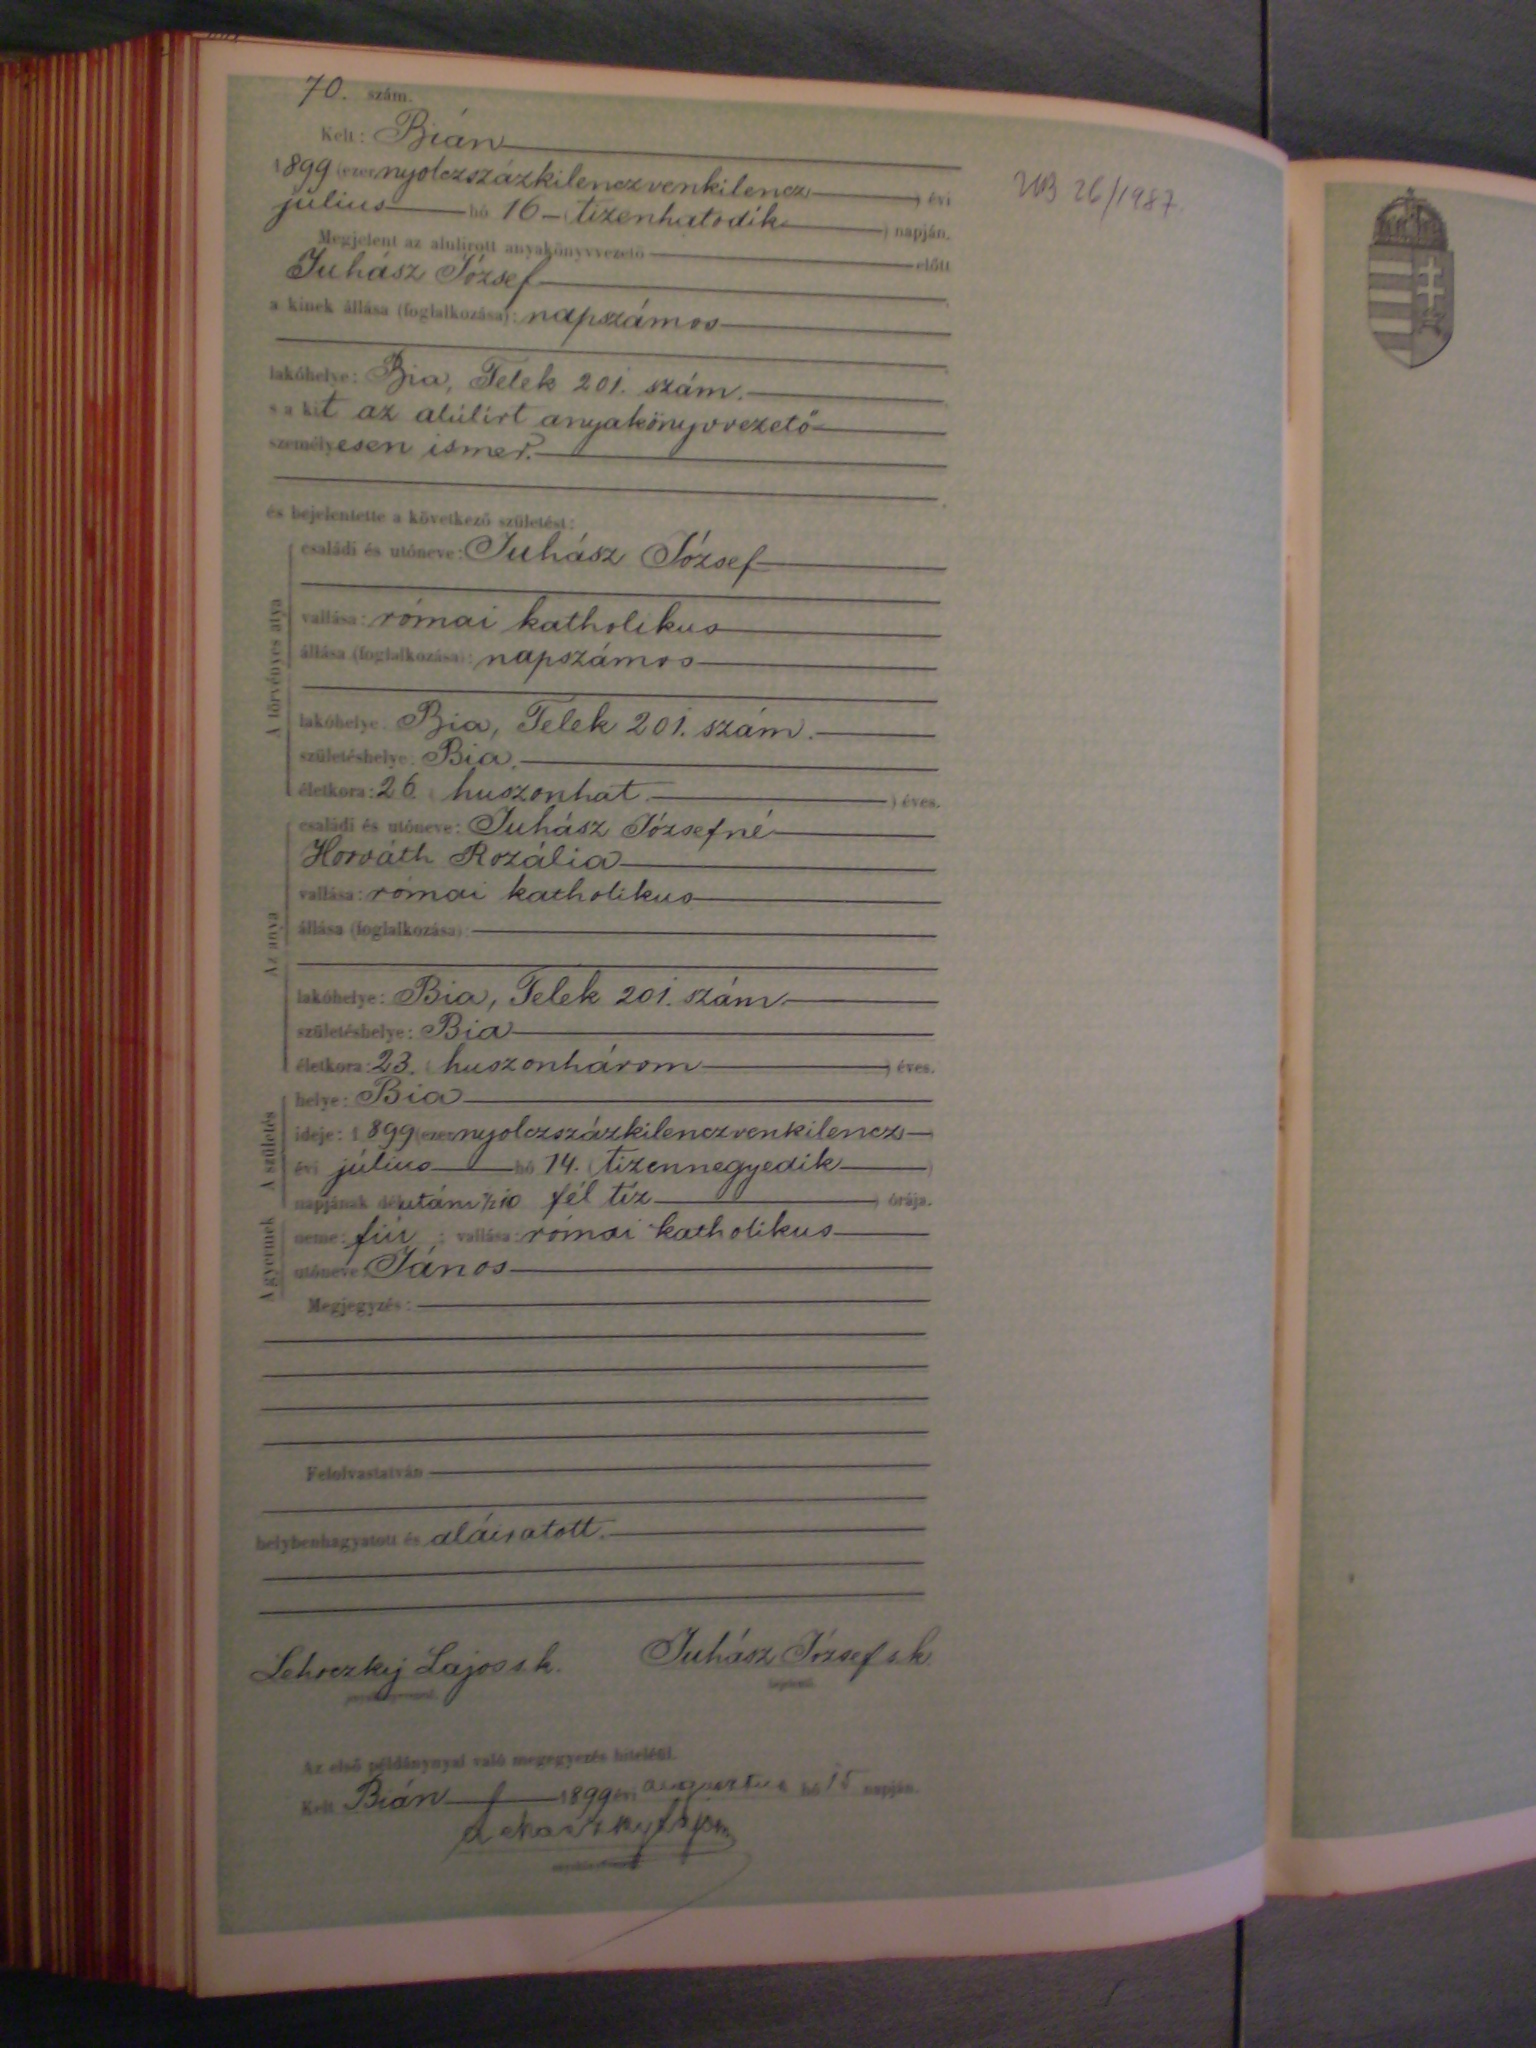 70. szám.
Kelt: Bián
1899 (ezer nyolczszázkilenczvenkilencz) évi
július hó 16 (tizenhatodik) napján.
Megjelent az alulirott anyakönyvvezető előtt
Juhász József
a kinek állása (foglalkozása): napszámos
lakóhelye: Bia, Telek 201. szám.
s a kit az alúlirt anyakönyvvezető
személyesen ismer.
és bejelentette a következő születést:
A törvényes atya
családi és utóneve: Juhász József
vallása: római katholikus
állása (foglalkozása): napszámos
lakóhelye: Bia, Telek 201. szám.
születéshelye: Bia.
életkora: 26. (huszonhat) éves.
Az anya
családi és utóneve: Juhász Józsefné
Horváth Rozália
vallása: római katholikus
állása (foglalkozása):
lakóhelye: Bia, Telek 201. szám
születéshelye: Bia
életkora: 23. (huszonhárom) éves.
A születés
helye: Bia
ideje: 1899 (ezer nyolczszázkilenczvenkilencz)
évi július hó 14. (tizennegyedik)
napjának délutáni ½10 fél tíz) órája.
A gyermek
neme: fiú; vallása: római katholikus
utóneve: János
Megjegyzés:
Felolvastatván
helybenhagyatott és aláiratott.
Lehoczky Lajos s.k. Juhász József s.k.
anyakönyvvezető. bejelentő.
Az első példánynyal való megegyezés hiteléül.
Kelt Bián 1899 évi augusztus hó 15 napján.
26/1987.